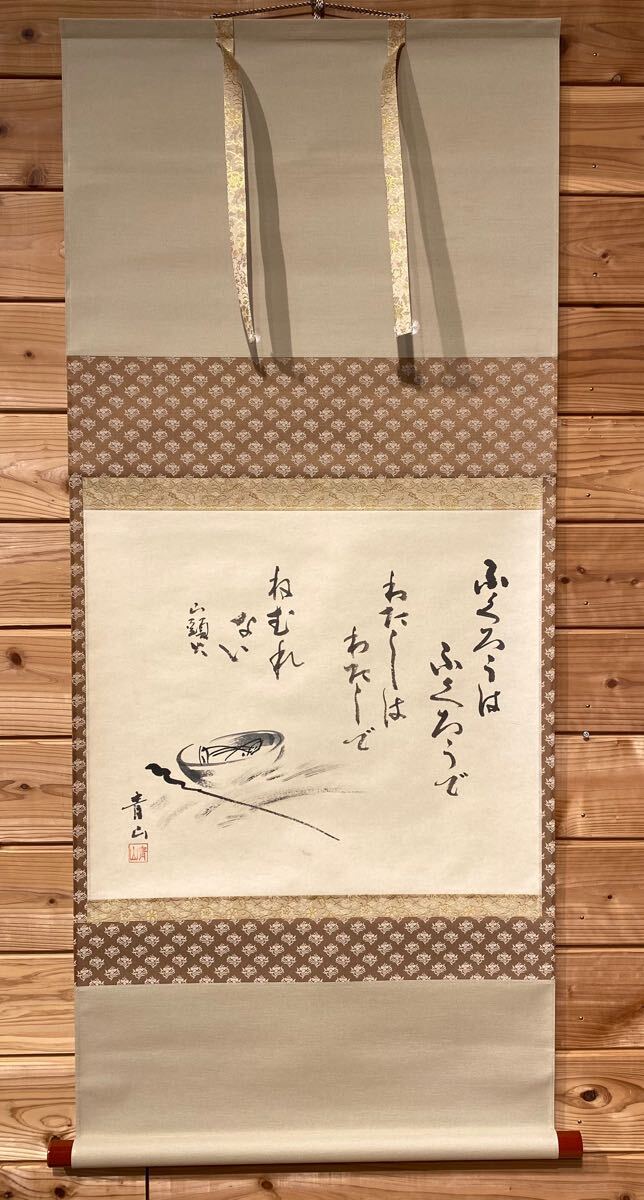 ふくろうは
ふくろうで
わたしは
わたしで
ねむれ
ない
山頭火
青山
青山